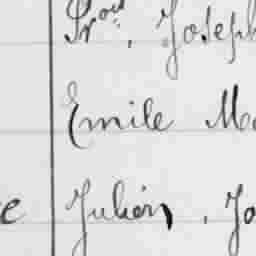 Prov. , Joseph
Emile Ma
e Julien , Jo